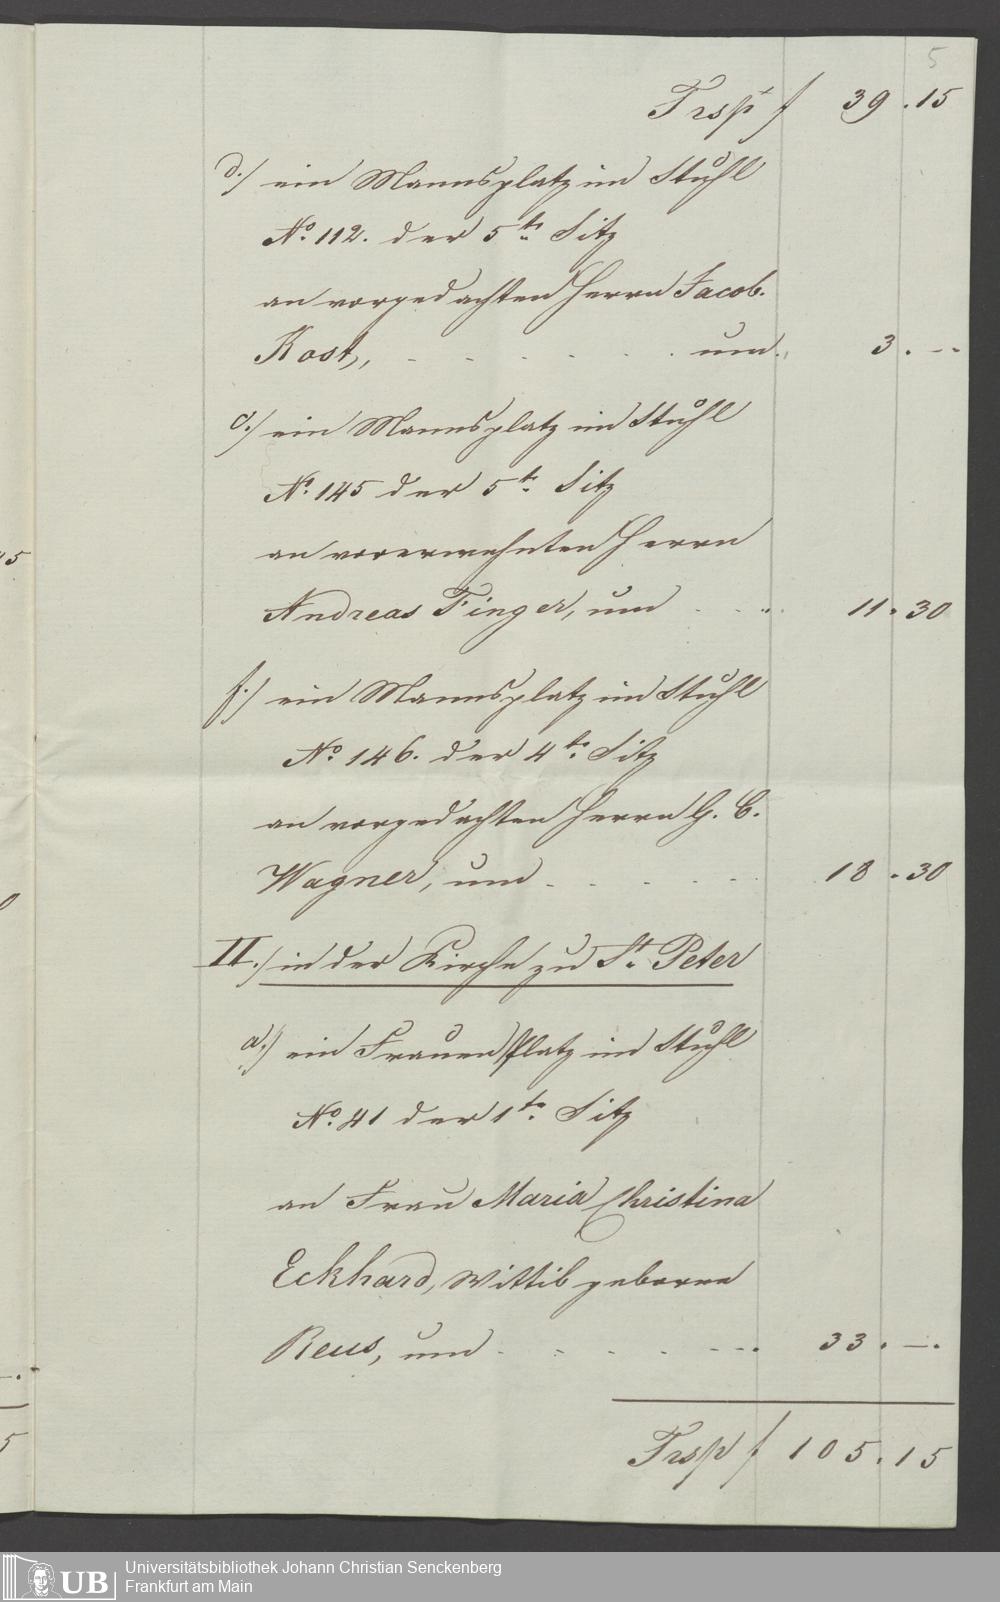 5
Trspt f 39.15
d./ ein Mannsplatz im Stuhl
No. 112. der 5te Sitz
an vorgedachten Herrn Jacob.
Kost, um 3.--
e./ ein Mannsplatz im Stuhl
No. 145 der 5te Sitz
an vorerwehnten Herrn
Andreas Finger, um 11.30
f./ ein Mannsplatz im Stuhl
No. 146. der 4te Sitz
an vorgedachten Herrn G. C.
Wagner, um 18.30
II./ in der Kirche zu St. Peter
a./ ein Frauen Platz im Stuhl
No. 41 der 1te Sitz
an Frau Maria Christina
Eckhard, Wittib geborne
Reus, um 33.--.
Trsp f. 105.15
UB Universitätsbibliothek Johann Christian Senckenberg
Frankfurt am Main